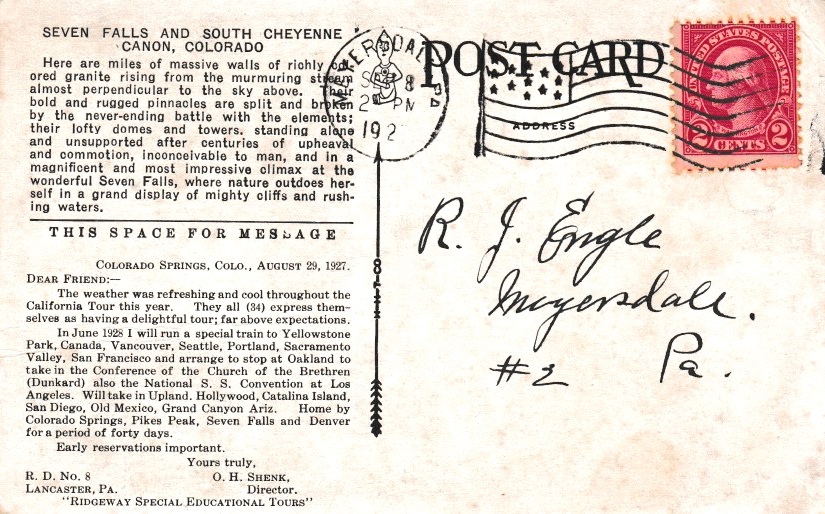 SEVEN FALLS AND SOUTH CHEYENNE
CANON, COLORADO
Here are miles of massive walls of richly col-
ored granite rising from the murmuring stream
almost perpendicular to the sky above. Their
bold and rugged pinnacles are split and broken
by the never-ending battle with the elements;
their lofty domes and towers. standing alone
and unsupported after centuries of upheaval
and commotion, inconceivable to man, and in a
magnificent and most impressive climax at the
wonderful Seven Falls, where nature outdoes her-
self in a grand display of mighty cliffs and rush-
ing waters.
THIS SPACE FOR MESSAGE
COLORADO SPRINGS, COLO., AUGUST 29, 1927.
DEAR FRIEND:—
The weather was refreshing and cool throughout the
California Tour this year. They all (34) express them-
selves as having a delightful tour; far above expectations.
In June 1928 I will run a special train to Yellowstone
Park, Canada, Vancouver, Seattle, Portland, Sacramento
Valley, San Francisco and arrange to stop at Oakland to
take in the Conference of the Church of the Brethren
(Dunkard) also the National S. S. Convention at Los
Angeles. Will take in Upland. Hollywood, Catalina Island,
San Diego, Old Mexico, Grand Canyon Ariz. Home by
Colorado Springs, Pikes Peak, Seven Falls and Denver
for a period of forty days.
Early reservations important.
Yours truly,
R. D. No. 8 O. H. SHENK,
LANCASTER, PA. Director.
"RIDGEWAY SPECIAL EDUCATIONAL TOURS"
POST CARD
ADDRESS
PM
192
UNITED STATES POSTAGE
2 CENTS 2
R. J. Engle
Meyersdale.
#2 Pa.